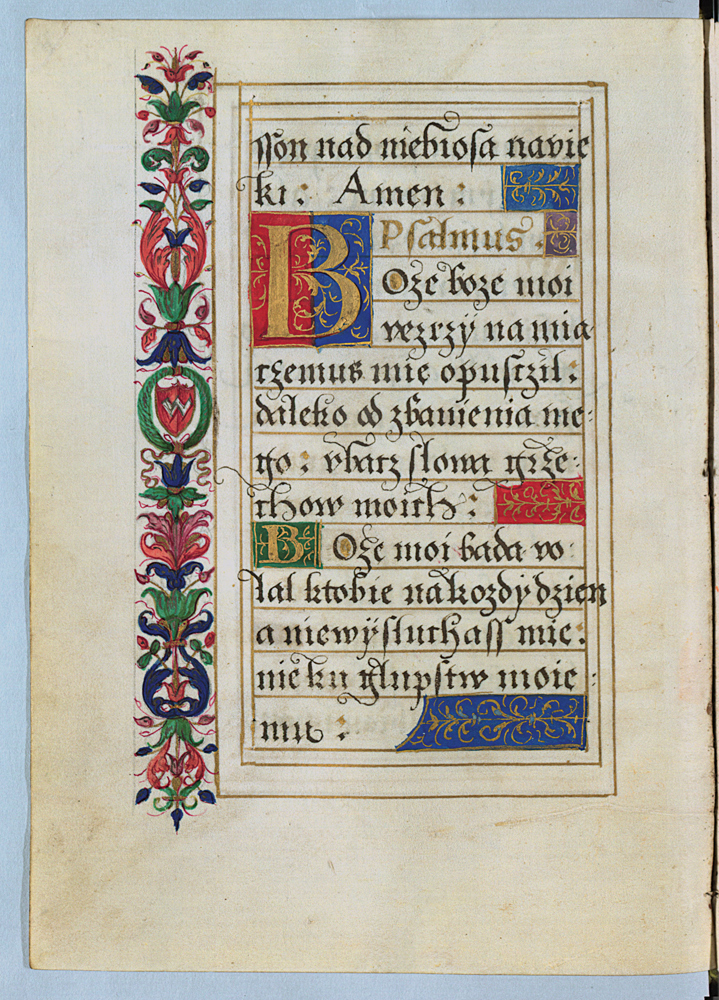 sson nad niebiosa navie
ki: Amen:
Psalmus.
BOże boze moi
vezrzÿ na mia
czemus mie opusczil:
daleko od zbauienia me-
go: vbacz slowa grze-
chow moich:
BOże moi bada vo-
lal ktobie nakozdÿ dzien
a niewÿsluchass mie:
nieku glupstw moie-
mu: